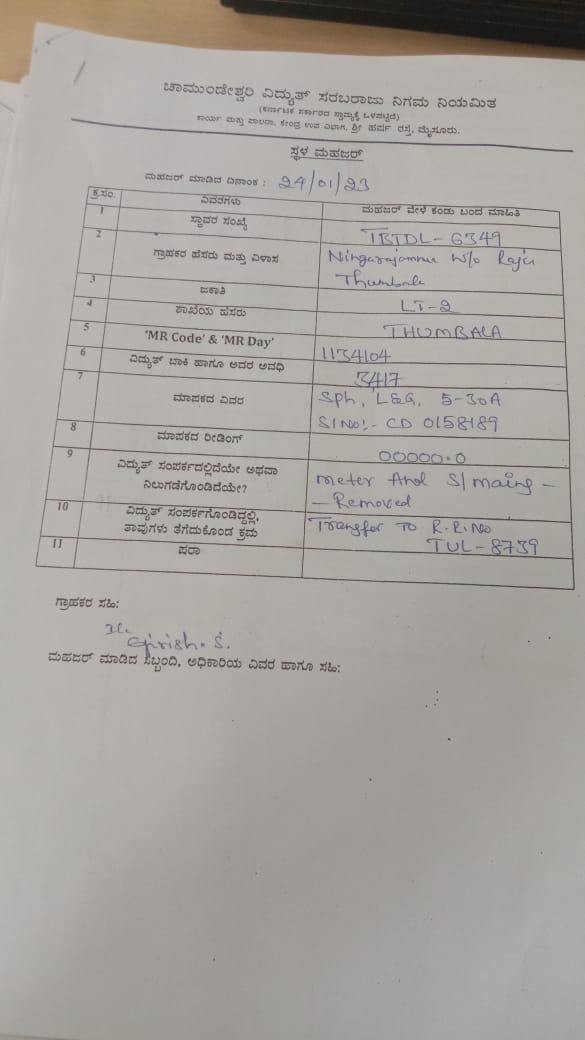 ಚಾಮುಂಡೇಶ್ವರಿ ವಿದ್ಯುತ್ ಸರಬರಾಜು ನಿಗಮ ನಿಯಮಿತ
(ಕರ್ನಾಟಕ ಸರ್ಕಾರದ ಸ್ವಾಮ್ಯಕ್ಕೆ ಒಳಪಟ್ಟಿದೆ)
ಕಾರ್ಯ ಮತ್ತು ಪಾಲನಾ, ಕೇಂದ್ರ ಉಪ ವಿಭಾಗ, ಶ್ರೀ ಹರ್ಷ ರಸ್ತೆ, ಮೈಸೂರು.
ಸ್ಥಳ ಮಹಜರ್
ಮಹಜರ್ ಮಾಡಿದ ದಿನಾಂಕ : 24/01/23
ಕ್ರ.ಸಂ. ವಿವರಗಳು ಮಹಜರ್ ವೇಳೆ ಕಂಡು ಬಂದ ಮಾಹಿತಿ
1 ಸ್ಥಾವರ ಸಂಖ್ಯೆ TBTDL-6349
2 ಗ್ರಾಹಕರ ಹೆಸರು ಮತ್ತು ವಿಳಾಸ Ningarajamma W/o Raju
Thumbala
3 ಜಕಾತಿ LT-2
4 ಶಾಖೆಯ ಹೆಸರು THUMBALA
5 'MR Code' & 'MR Day' 1134104
6 ವಿದ್ಯುತ್ ಬಾಕಿ ಹಾಗೂ ಅದರ ಅವಧಿ 3417
7 ಮಾಪಕದ ವಿವರ Sph, L&G, 5-30A
Sl No:- CD 0158189
8 ಮಾಪಕದ ರೀಡಿಂಗ್ 00000.0
9 ವಿದ್ಯುತ್ ಸಂಪರ್ಕದಲ್ಲಿದೆಯೇ ಅಥವಾ meter And S/maing -
ನಿಲುಗಡೆಗೊಂಡಿದೆಯೇ? - Removed
10 ವಿದ್ಯುತ್ ಸಂಪರ್ಕಗೊಂಡಿದ್ದಲ್ಲಿ, Transfer To R.R.No
ತಾವುಗಳು ತೆಗೆದುಕೊಂಡ ಕ್ರಮ TUL-8739
11 ಷರಾ
ಗ್ರಾಹಕರ ಸಹಿ:
Girish.S.
ಮಹಜರ್ ಮಾಡಿದ ಸಿಬ್ಬಂದಿ, ಅಧಿಕಾರಿಯ ವಿವರ ಹಾಗೂ ಸಹಿ: